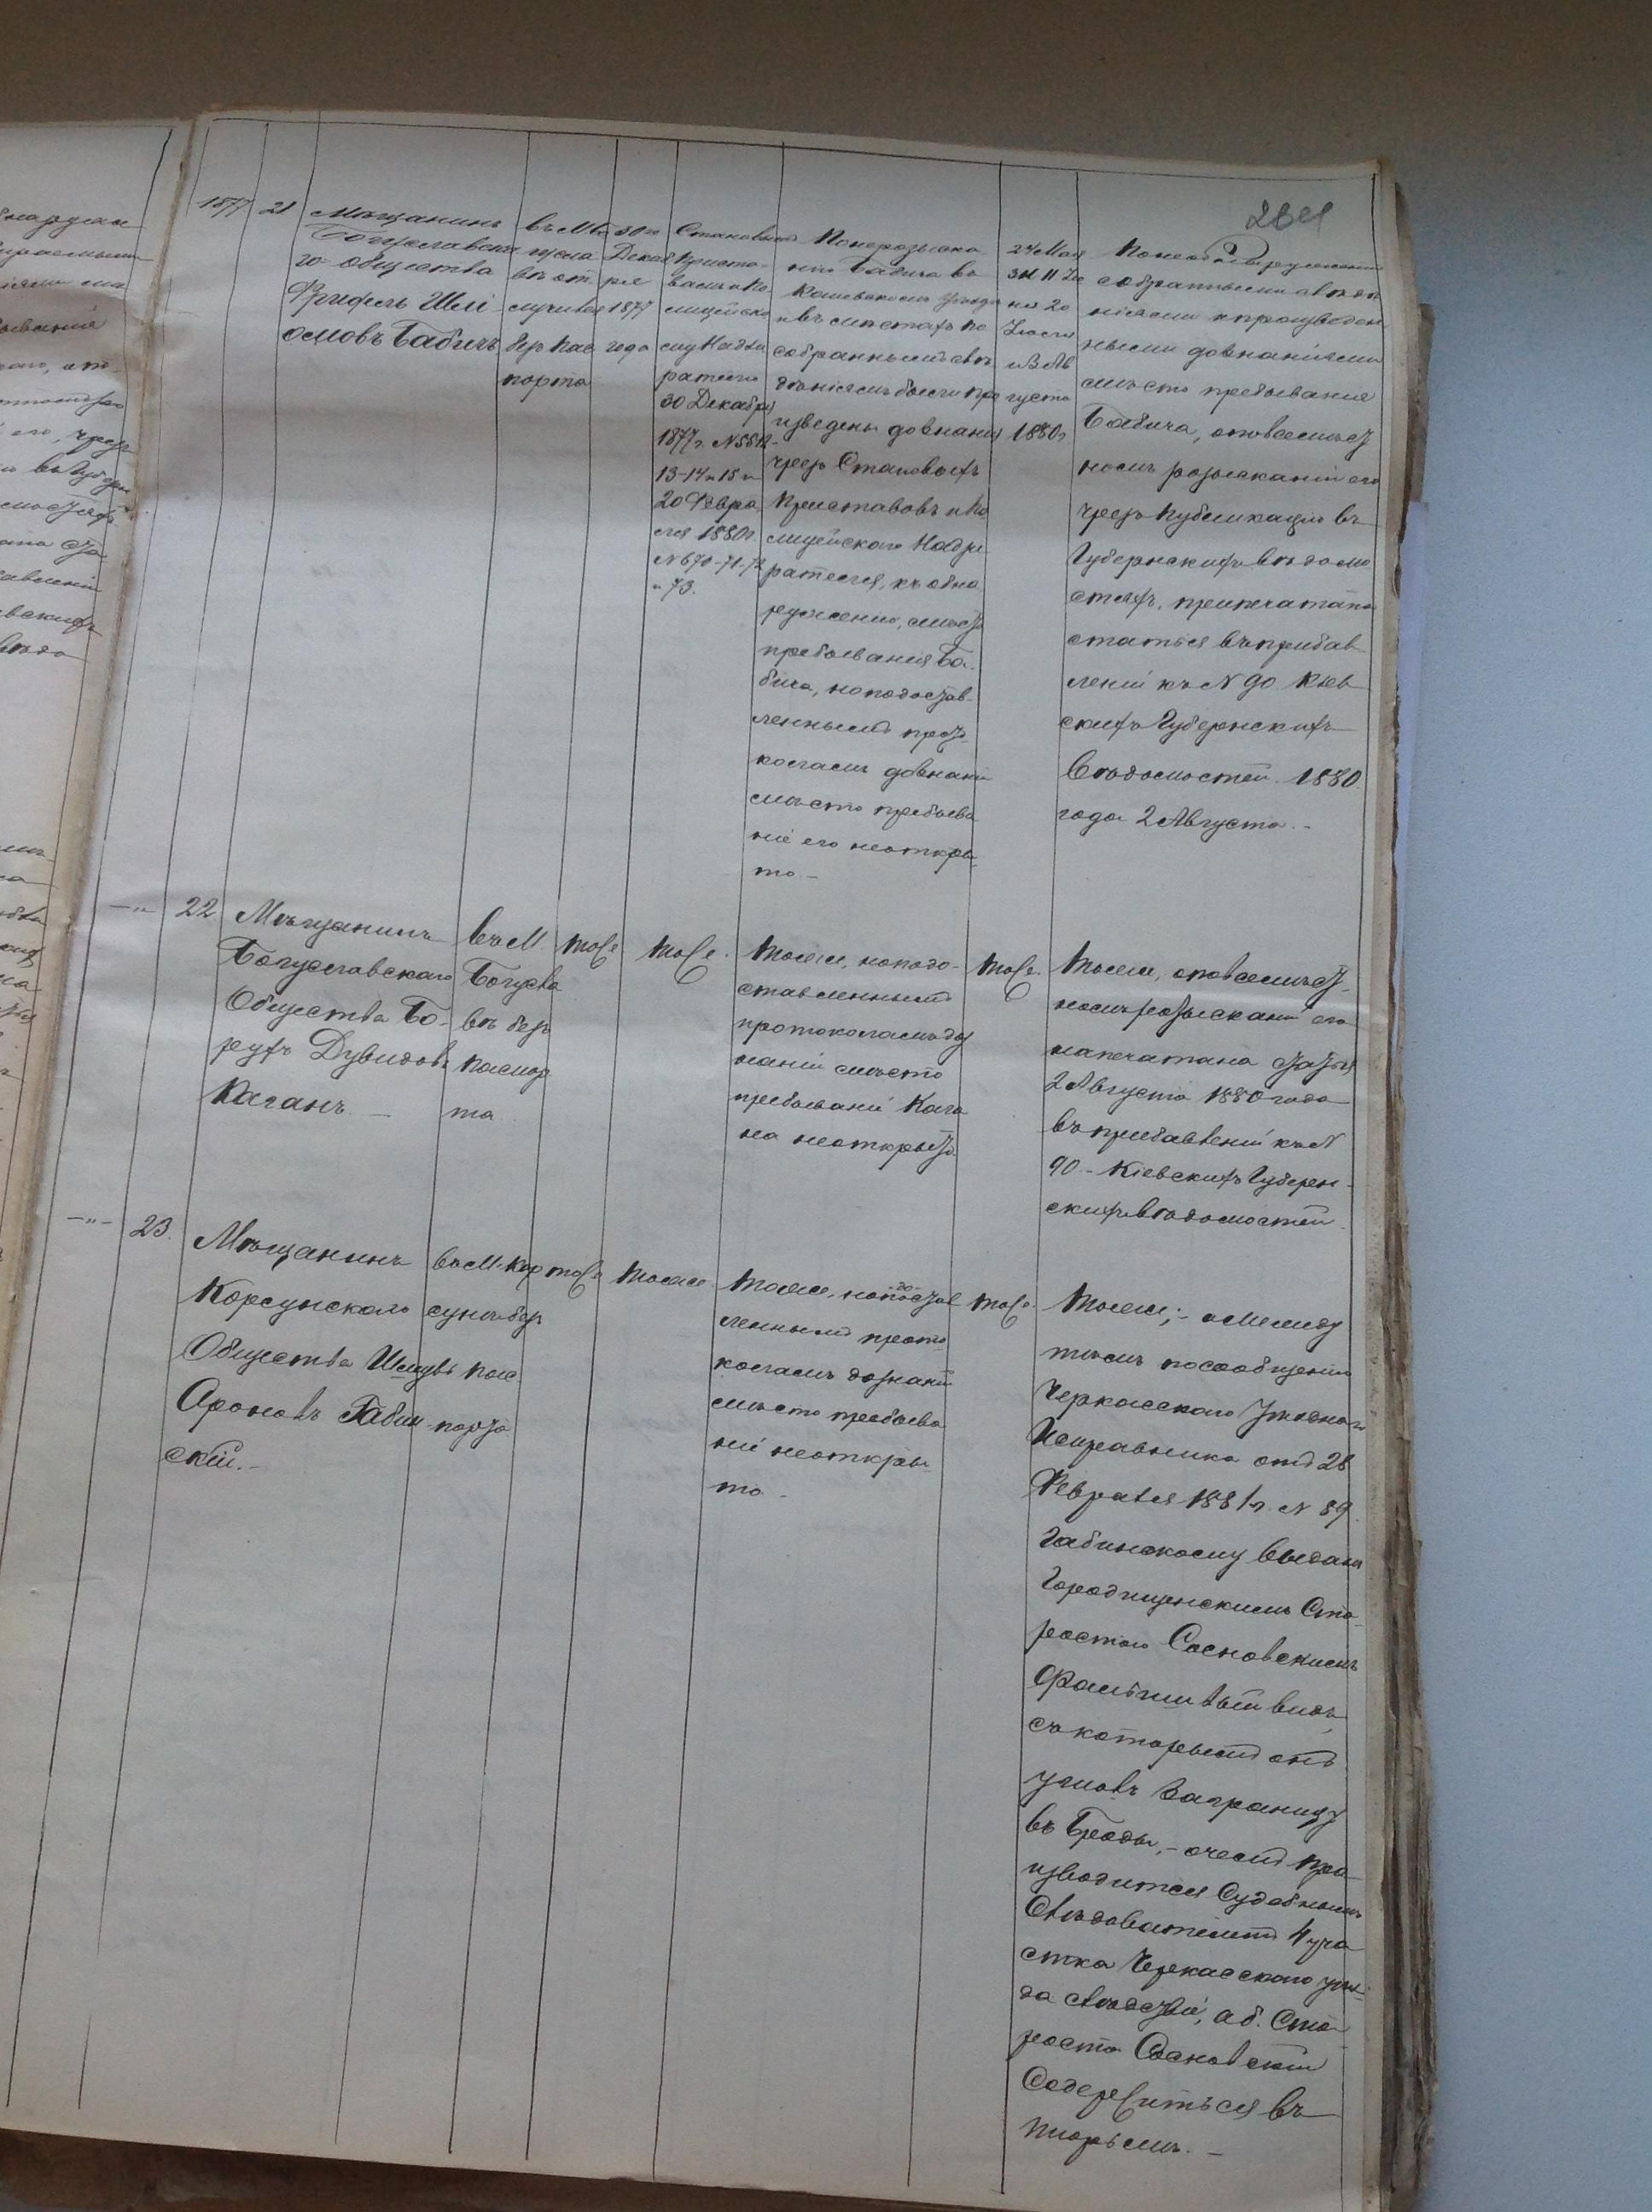 1877
21
Мѣщанинъ
Богуславска
го общества
Фрифель Шлі
омовъ Бабичъ
отлучился
безъ пас
порта
30го
Декаб
ря
1877
года
Становымъ
Приста-
вамъ и По
лицейско
му Надзи
рателю
30 Декабря
1877 г. №
13-14 и 15 и
20 Февра
ля 1880 г.
№ 670-71-72
и 73.
По неразыска
нію Бабича въ
Каневскомъ уѣздѣ
и въ мѣстахъ по
собраннымъ свѣ
дѣніямъ были пр
изведены дознанія
чрезъ Становыхъ
Приставовъ и По
лицейского Надзи
рателя, къ обна
руженію, мѣста
пребыванія Ба-
бича, но по достав-
леннымъ прото
коламъ дознаній
мѣсто пребыва
ніе его неоткры-
то –
24 Мая
20
Іюля
и 3 Ав
густа
1880 г
По необнаруженію
собранными свѣдѣ
ніями и произведен
ными дознаніями
мѣсто пребыванія
Бабича, о повсемѣст
номъ розысканіи его
чрезъ публикацію въ
Губернскихъ вѣдомо
стяхъ, припечатана
статья въ прибав
леніи къ № 90. Кіев
скихъ Губернскихъ
Вѣдомостей 1880
года 2 Августа. –
–"–
22
Мѣщанинъ
Богуславскаго
Общества Бо-
рухъ Дувидовъ
Каганъ –
въ М.
Богусла
въ безъ
паспор
та
тоже
тоже.
Тоже, но по до-
ставленнымъ
протоколамъ доз
наній мѣсто
пребываній Кага
на неоткрыто
тоже.
Тоже, о повсемѣст-
номъ розысканіи его
напечатана статья
2 Августа 1880 года
въ прибавленіи къ №
90 – Кіевскихъ Губерн-
скихъ вѣдомостей.
–"–
23.
Мѣщанинъ
Корсунского
Общества Шмуль
Ароновъ Габин-
скій. –
въ М. Кор
сунь безъ
пас
порта
тоже
Тоже.
Тоже, но по достав
леннымъ прото
коламъ дознаній
мѣсто пребыва
ніе неоткры-
то –
тоже.
Тоже; – а между
тѣмъ по сообщенію
Черкасского Уѣзднаго
Исправника отъ 28
Февраля 1881 г. № 89.
Габинскому выданъ
Городищенскимъ Ста
ростою Сосновскимъ
фальшивый видъ,
съ которымъ онъ
ушолъ заграницу
въ Броды, – о чемъ про
изводится Судебнымъ
Слѣдователемъ 4 уча
стка Черкасского уѣз-
да слѣдствіе, а б. Ста
роста Сосновскій
Содержиться въ
тюрьмѣ. –